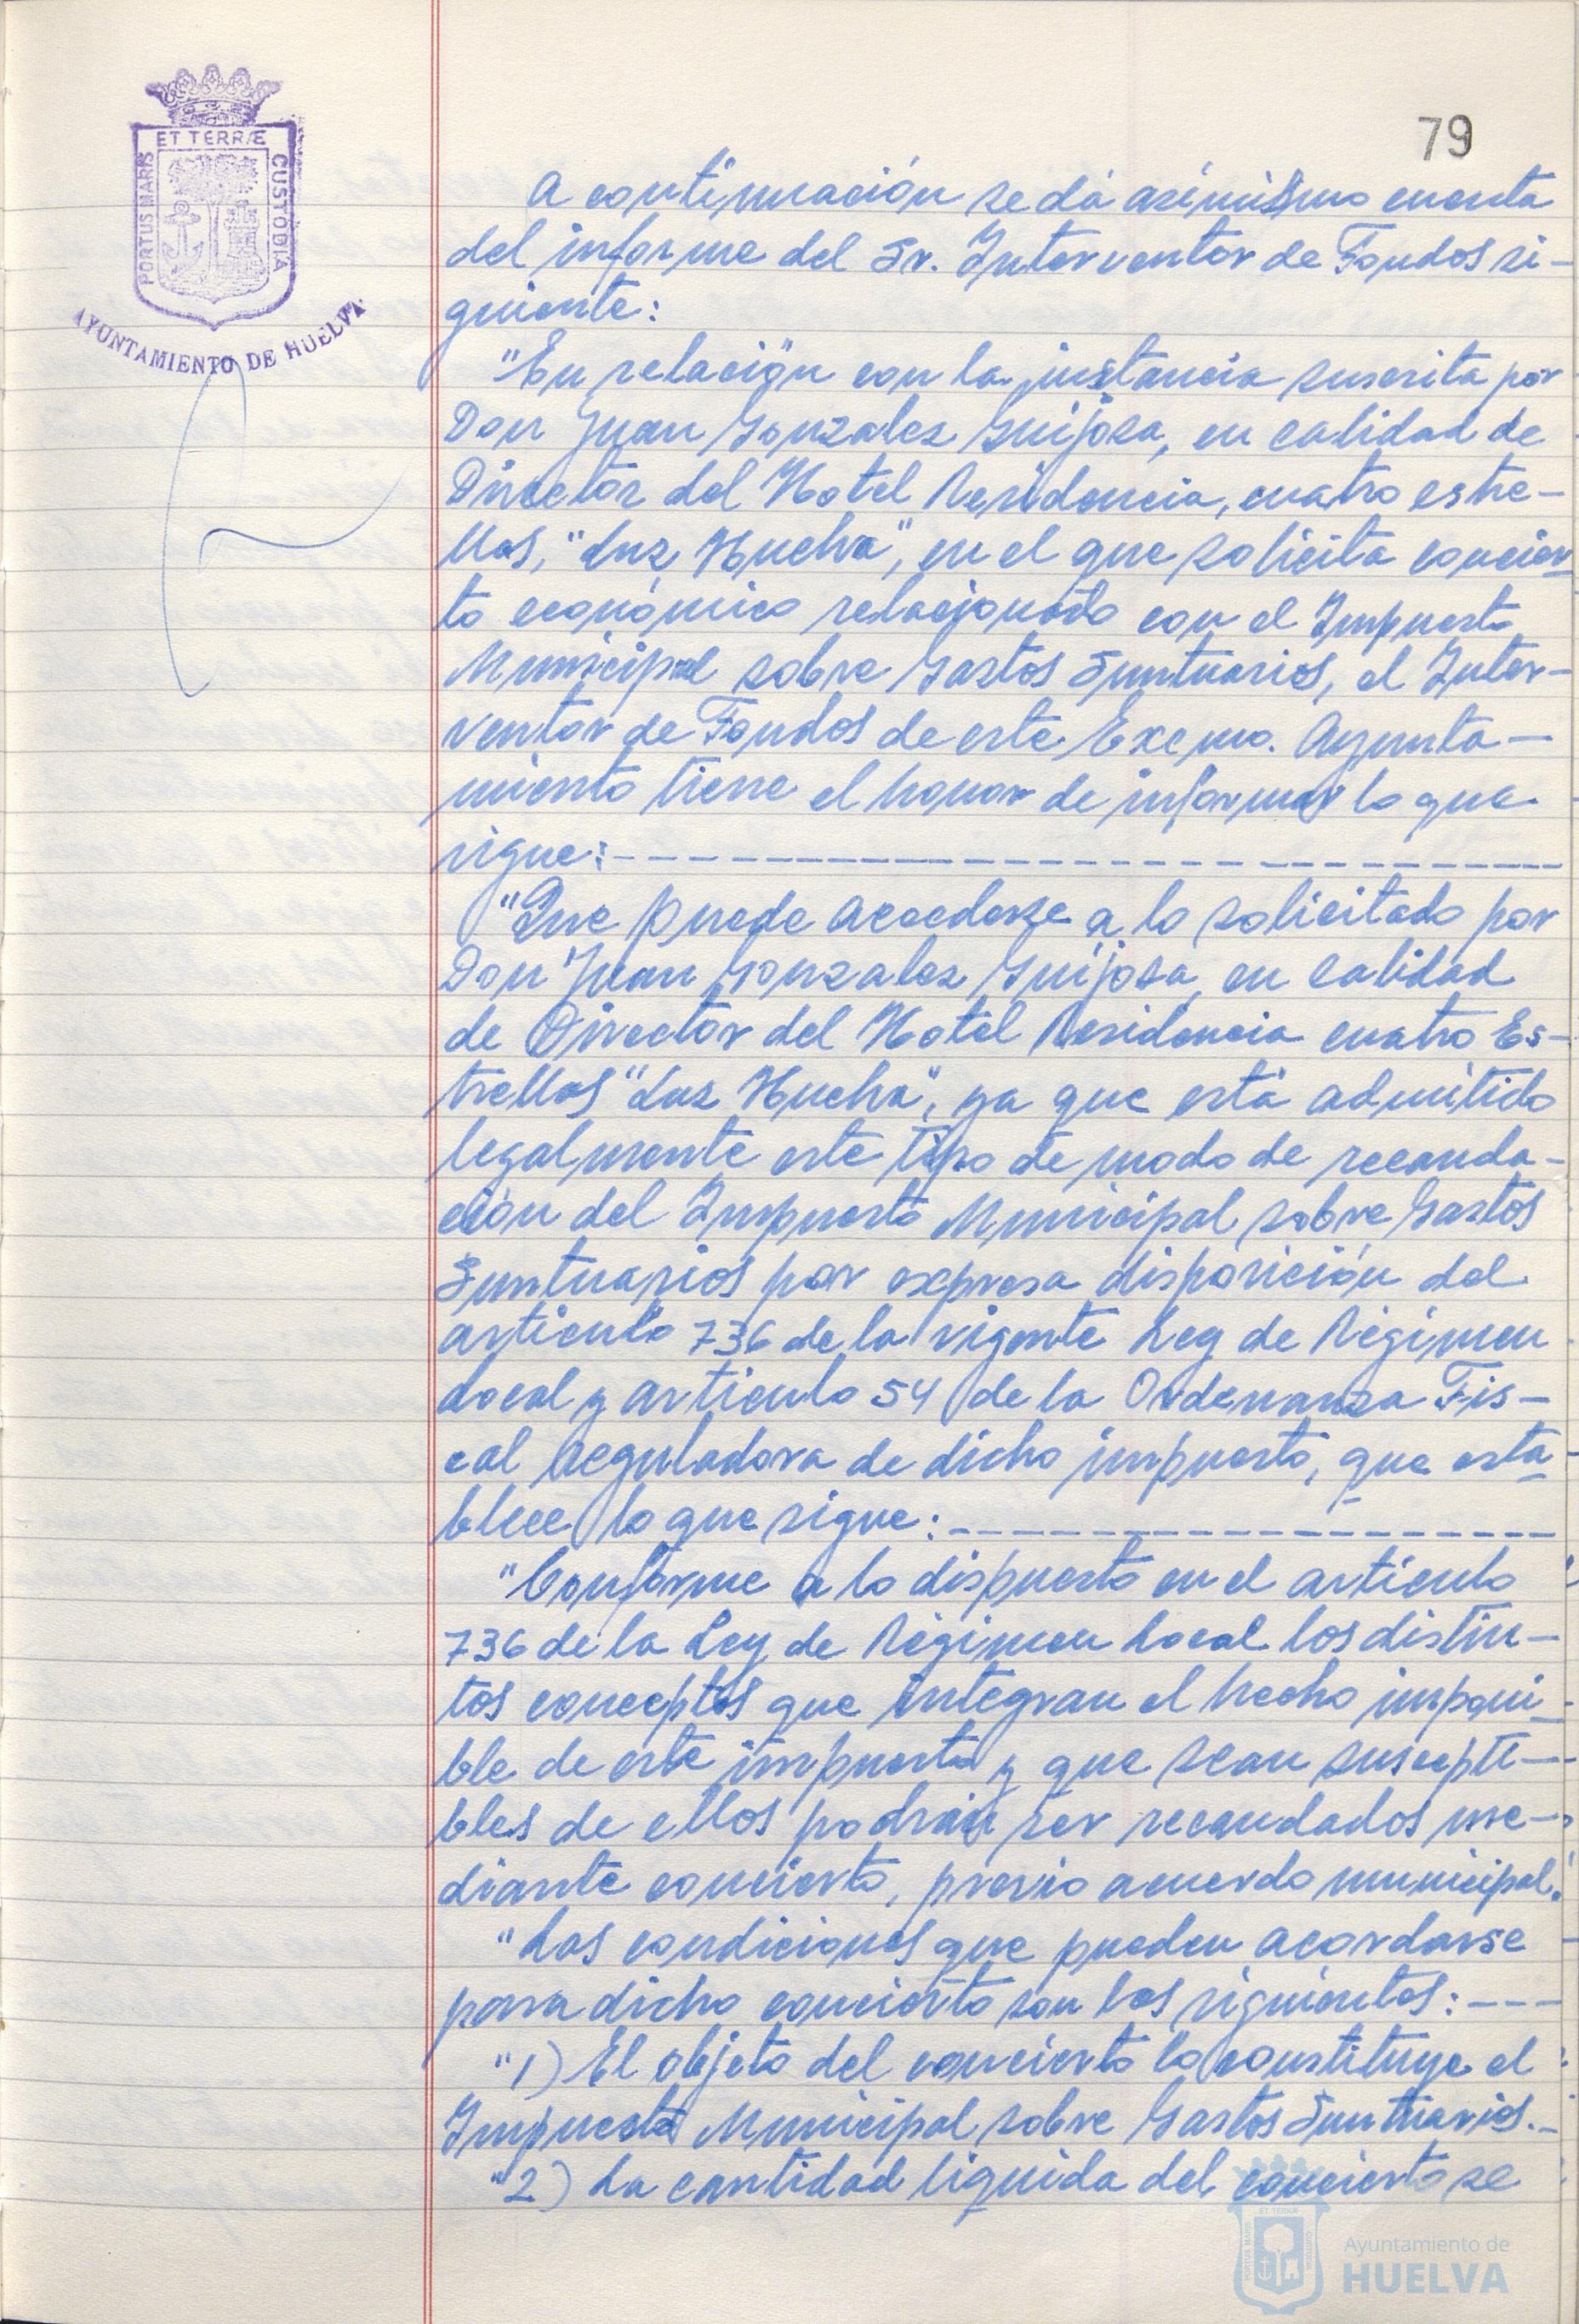 ET TERRÆ
PORTUS MARIS
CUSTODIA
AYUNTAMIENTO DE HUELVA
79
A continuación se dá asimismo cuenta
del informe del Sr. Interventor de Fondos si-
guiente:
"En relación con la instancia suscrita por
Don Juan Gonzalez Guijosa, en calidad de
Director del Hotel Residencia, cuatro estre-
llas, "Luz Huelva", en el que solicita concier-
to económico relacionado con el Impuesto
Municipal sobre Gastos Suntuarios, el Inter-
ventor de Fondos de este Excmo. Ayunta-
miento tiene el honor de informar lo que
sigue:
"Que puede accederse a lo solicitado por
Don Juan Gonzalez Guijosa, en calidad
de Director del Hotel Residencia cuatro Es-
trellas "Luz Huelva", ya que está admitido
legalmente este tipo de modo de recauda-
ción del Impuesto Municipal sobre Gastos
Suntuarios por expresa disposición del
artículo 736 de la vigente Ley de Régimen
Local y artículo 54 de la Ordenanza Fis-
cal Reguladora de dicho impuesto, que esta-
blece lo que sigue:
"Conforme a lo dispuesto en el artículo
736 de la Ley de Régimen Local los distin-
tos conceptos que integran el hecho imponi-
ble de este impuesto y que sean suscepti-
bles de ellos podrán ser recaudados me-
diante concierto, previo acuerdo municipal.
"Las condiciones que pueden acordarse
para dicho concierto son las siguientes: ---
"1) El objeto del concierto lo constituye el
Impuesto Municipal sobre Gastos Suntuarios.-
"2) La cantidad líquida del concierto se
Ayuntamiento de
HUELVA